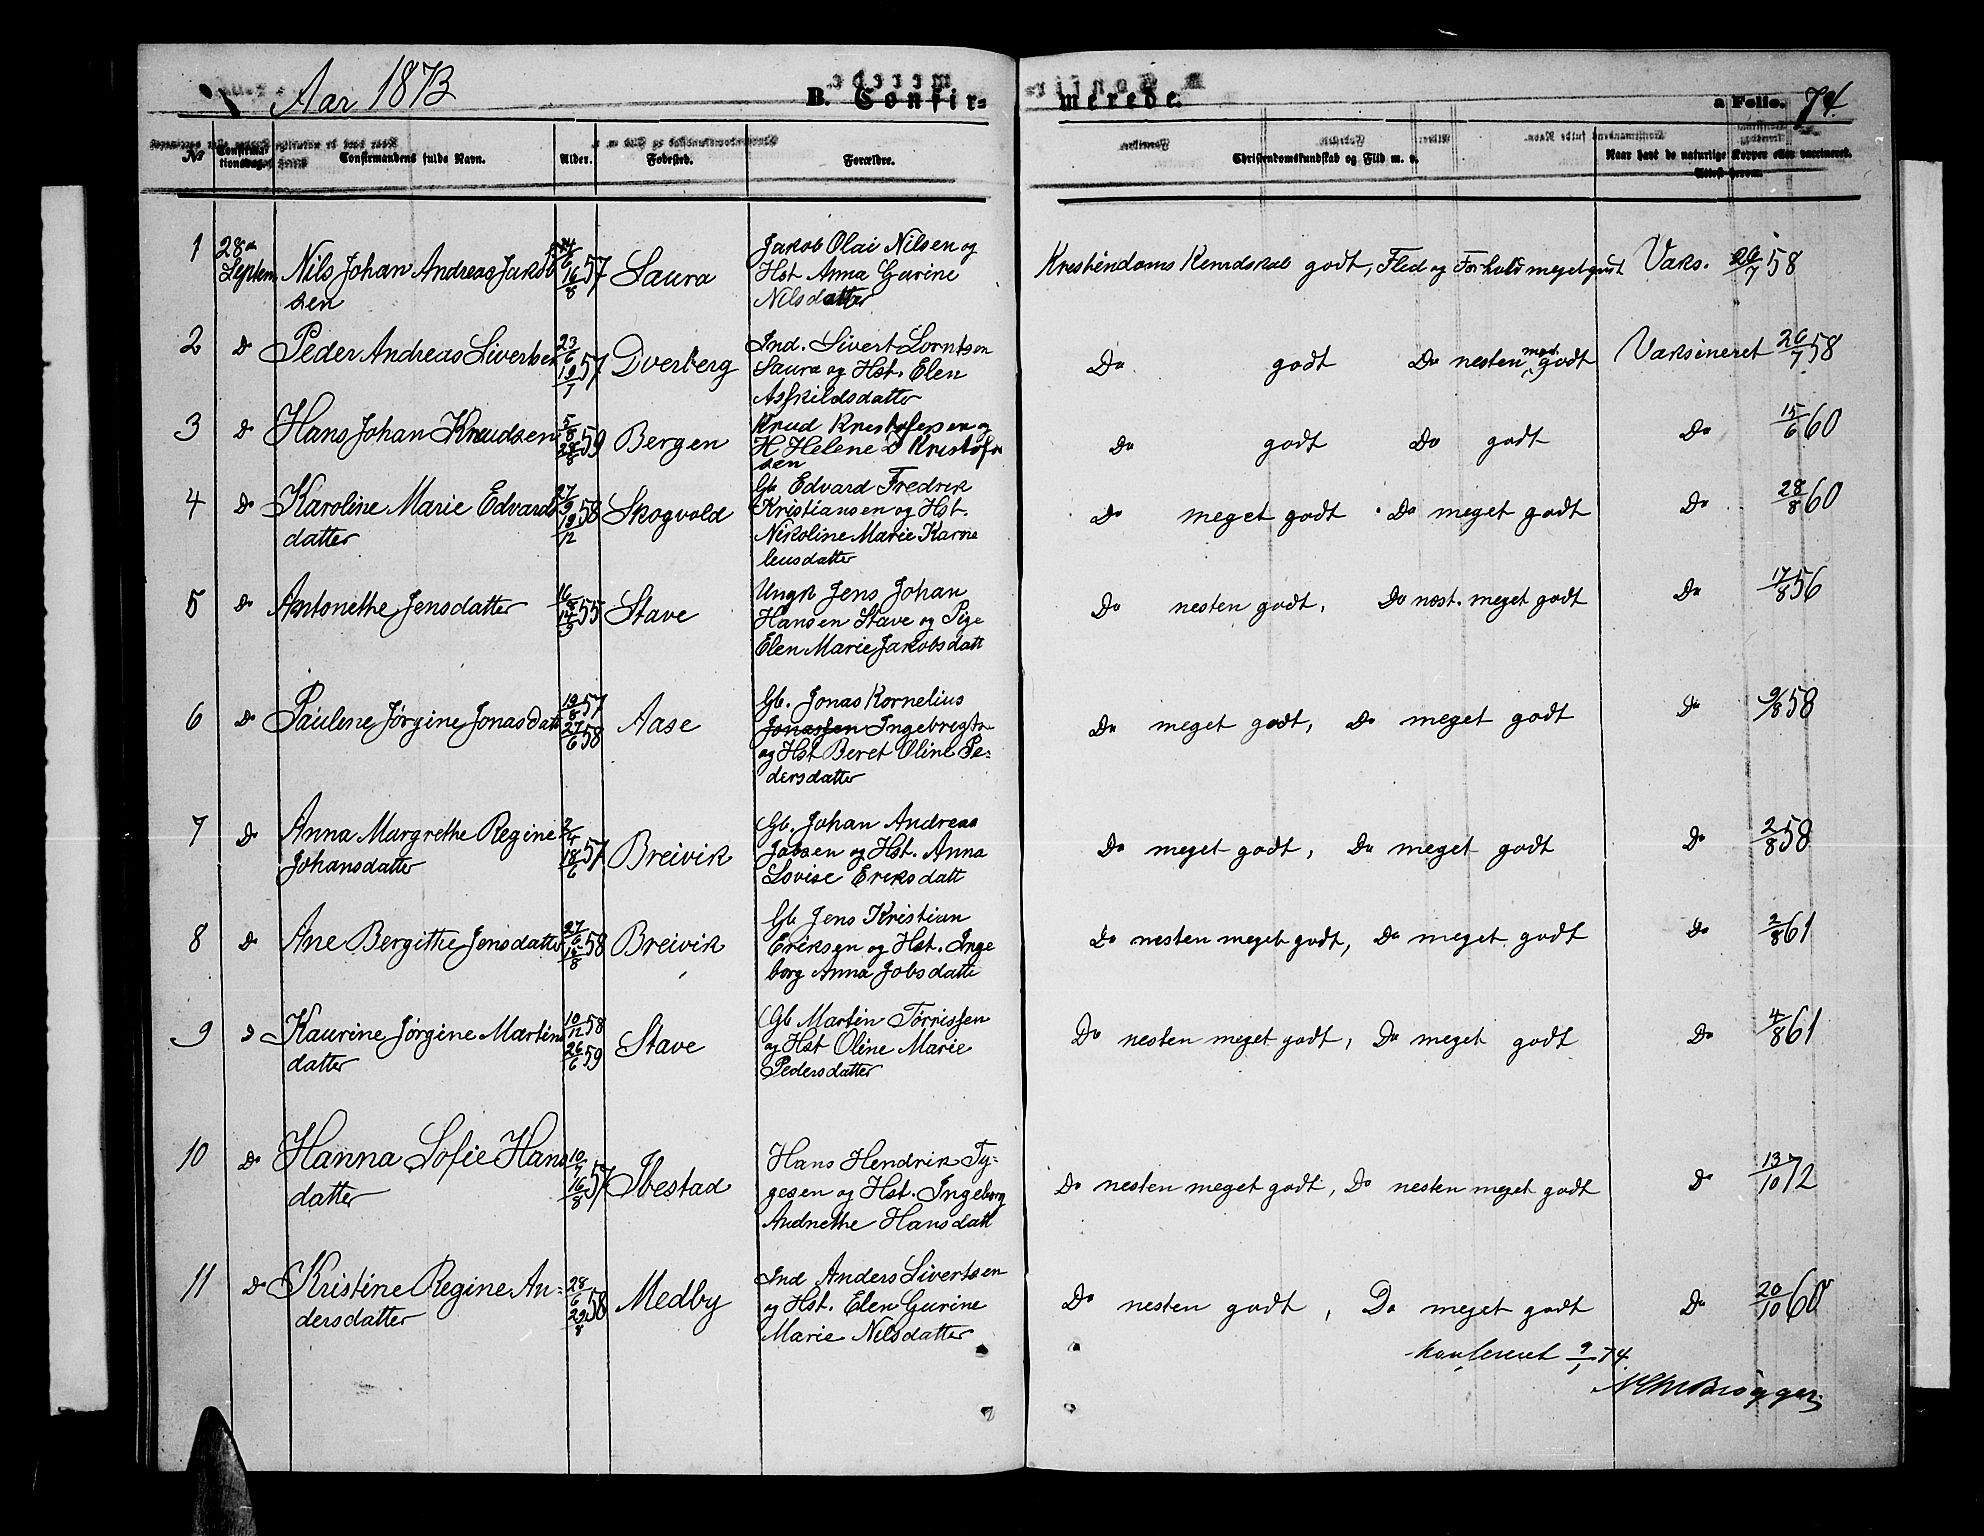 Aar 1873
B. Confir= merede.
a Folio. 74.
No Confirmationsdag. Confirmandens fulde Navn. Alder. Fødested. Forældre. Christendomskundskab og Flid m. v. Naar havt de naturlige Kopper eller vaccineret. Attest herom.
1 28de Septem Nils Johan Andreas Jakobsen 16/8 57 Saura
Jakob Olai Nilsen og
Hst Anna Gurine
Nilsdatter
Krestendoms Kundskab godt, Flid og Forhold meget godt Vaks. 26/7 58
2 Do Peder Andreas Sivertsen 23/6 57 Dverberg
Ind. Sivert Lorntsen
Saura og Hst. Elen
Asskildsdatter
Do godt Do nesten meg. godt Vaksineret 26/7 58
3 Do Hans Johan Knudsen 5/8 59 Bergen
Knud Krestofersen og
H Helene Kristofer
sen
Do godt Do godt Do 15/6 60
4 Do Karoline Marie Edvards
datter 58 Skogvold
Gb Edvard Fredrik
Kristiansen og Hst.
Nikoline Marie Karne
leusdatter
Do meget godt Do meget godt Do 28/8 60
5 Do Antonethe Jensdatter 55 Stave
Ungk Jens Johan
Hansen Stave og Pige
Elen Marie Jakobsdatt
Do nesten godt, Do næst. meget godt Do 17/8 56
6 Do Paulene Jørgine Jonasdatt 19/8 57 27/6 58 Aase
Gb. Jonas Kornelius
Jonassen Ingebregts
og Hst Beret Oline Pe=
dersdatter
Do meget godt, Do meget godt Do 9/8 58
7 Do Anna Margrethe Regine
Johansdatter 18/6 57 Breivik
Gb. Johan Andreas
Jobsen og Hst. Anna
Lovise Eriksdatt
Do meget godt, Do meget godt Do 2/8 58
8 Do Ane Bergithe Jensdatter 58 Breivik
Gb Jens Kristian
Eriksen og Hst. Inge
borg Anna Jobsdatte
Do nesten meget godt, Do meget godt Do 2/8 61
9 Do Kaurine Jørgine Martins
datter 10/12 58 26/6 59 Stave
Gb Martin Tørrissen
og Hst Oline Marie
Pedersdatter
Do nesten meget godt, Do meget godt Do 4/8 61
10 Do Hanna Sofie Hans
datter 10/7 16/8 57 Ibestad
Hans Hendrik Ty=
gesen og Hst. Ingeborg
Andnethe Hansdatt
Do nesten meget godt, Do nesten meget godt Do 13/10 72
11 Do Kristine Regine An=
dersdatter 28/6 29/8 58 Medby
Ind Anders Sivertsen
og Hst. Elen Gurine
Marie Nilsdatter
Do nesten godt, Do meget godt Do 20/10 60
konfereret 9/1 74.
Brøgger